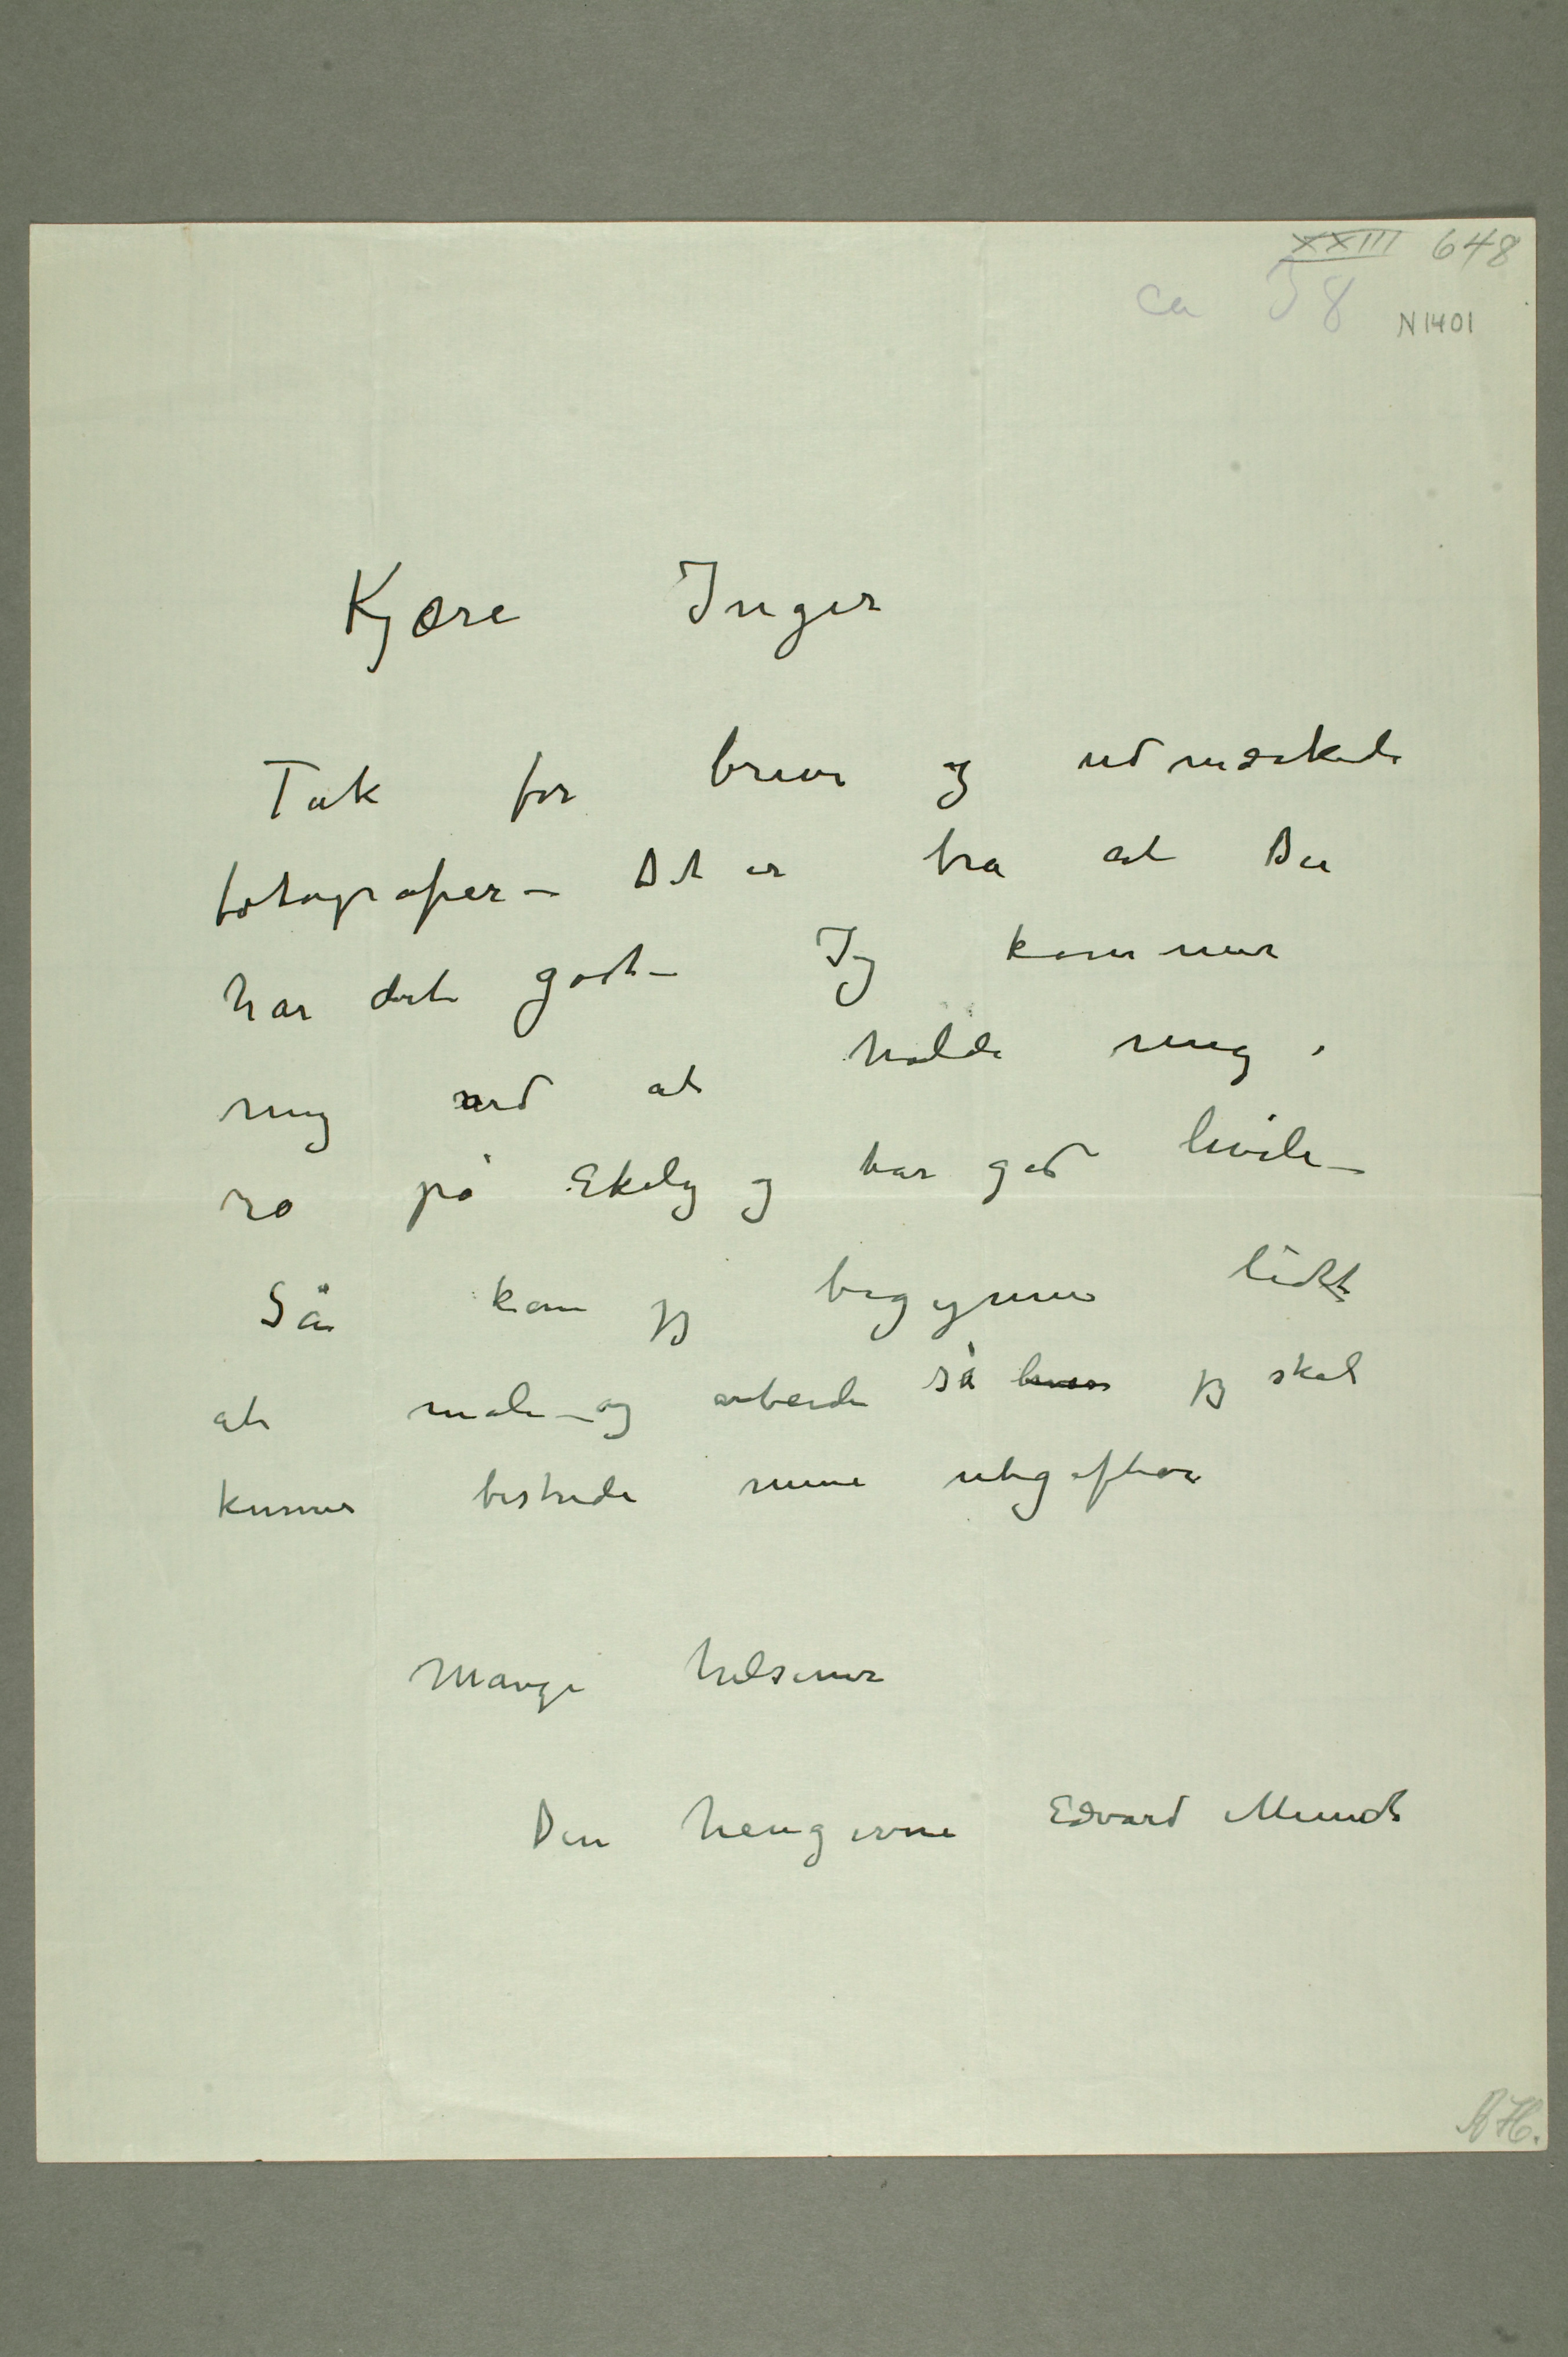 XXIII 648
ca 38 N1401
Kjære Inger
Tak for brev og udmærkede
fotografier – Det er bra at Du
har det godt – Jeg kommer
mig ved at holde mig i
ro på Ekely og har god hvile –
Så kan jeg begynne lidt
at male – og arbeide så jeg skal
kunne bestride mine utgifter
Mange hilsener
Din hengivne Edvard Munch